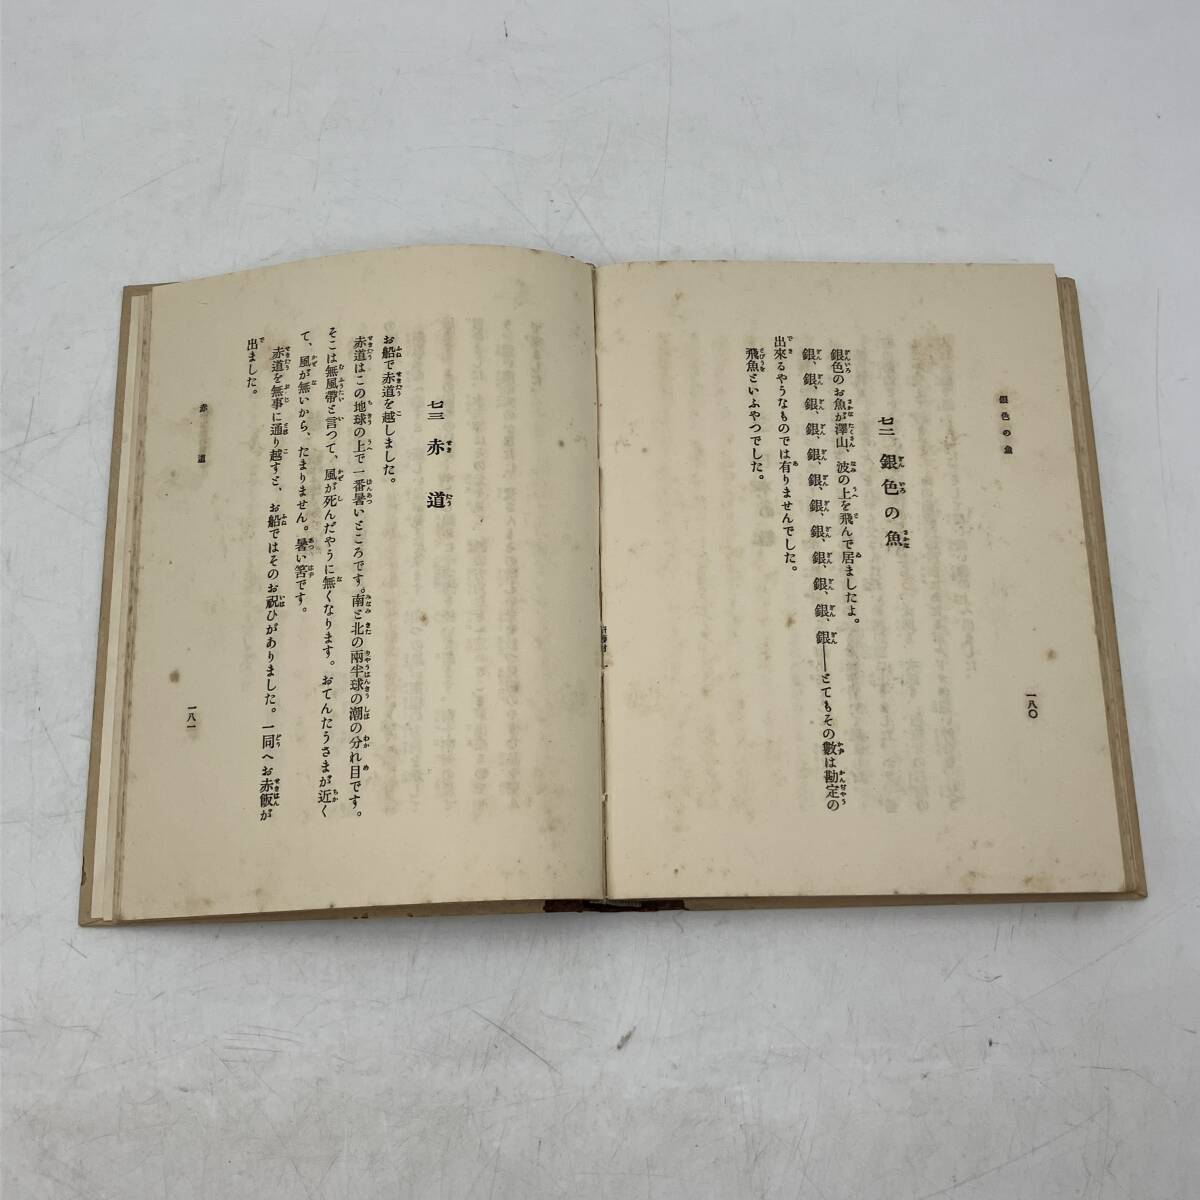 銀色の魚
一八〇
七二 銀色の魚
銀色のお魚が澤山、波の上を飛んで居ましたよ。
銀、銀、銀、銀、銀、銀、銀、銀、銀、銀、銀、銀――とてもその數は勘定の
出來るやうなものでは有りませんでした。
飛魚といふやつでした。
七三 赤道
お船で赤道を越しました。
赤道はこの地球の上で一番暑いところです。南と北の兩半球の潮の分れ目です。
そこは無風帶と言つて、風が死んだやうに無くなります。おてんたうさまが近く
て、風が無いから、たまりません。暑い筈です。
赤道を無事に通り越すと、お船ではそのお祝ひがありました。一同へお赤飯が
出ました。
赤道
一八一